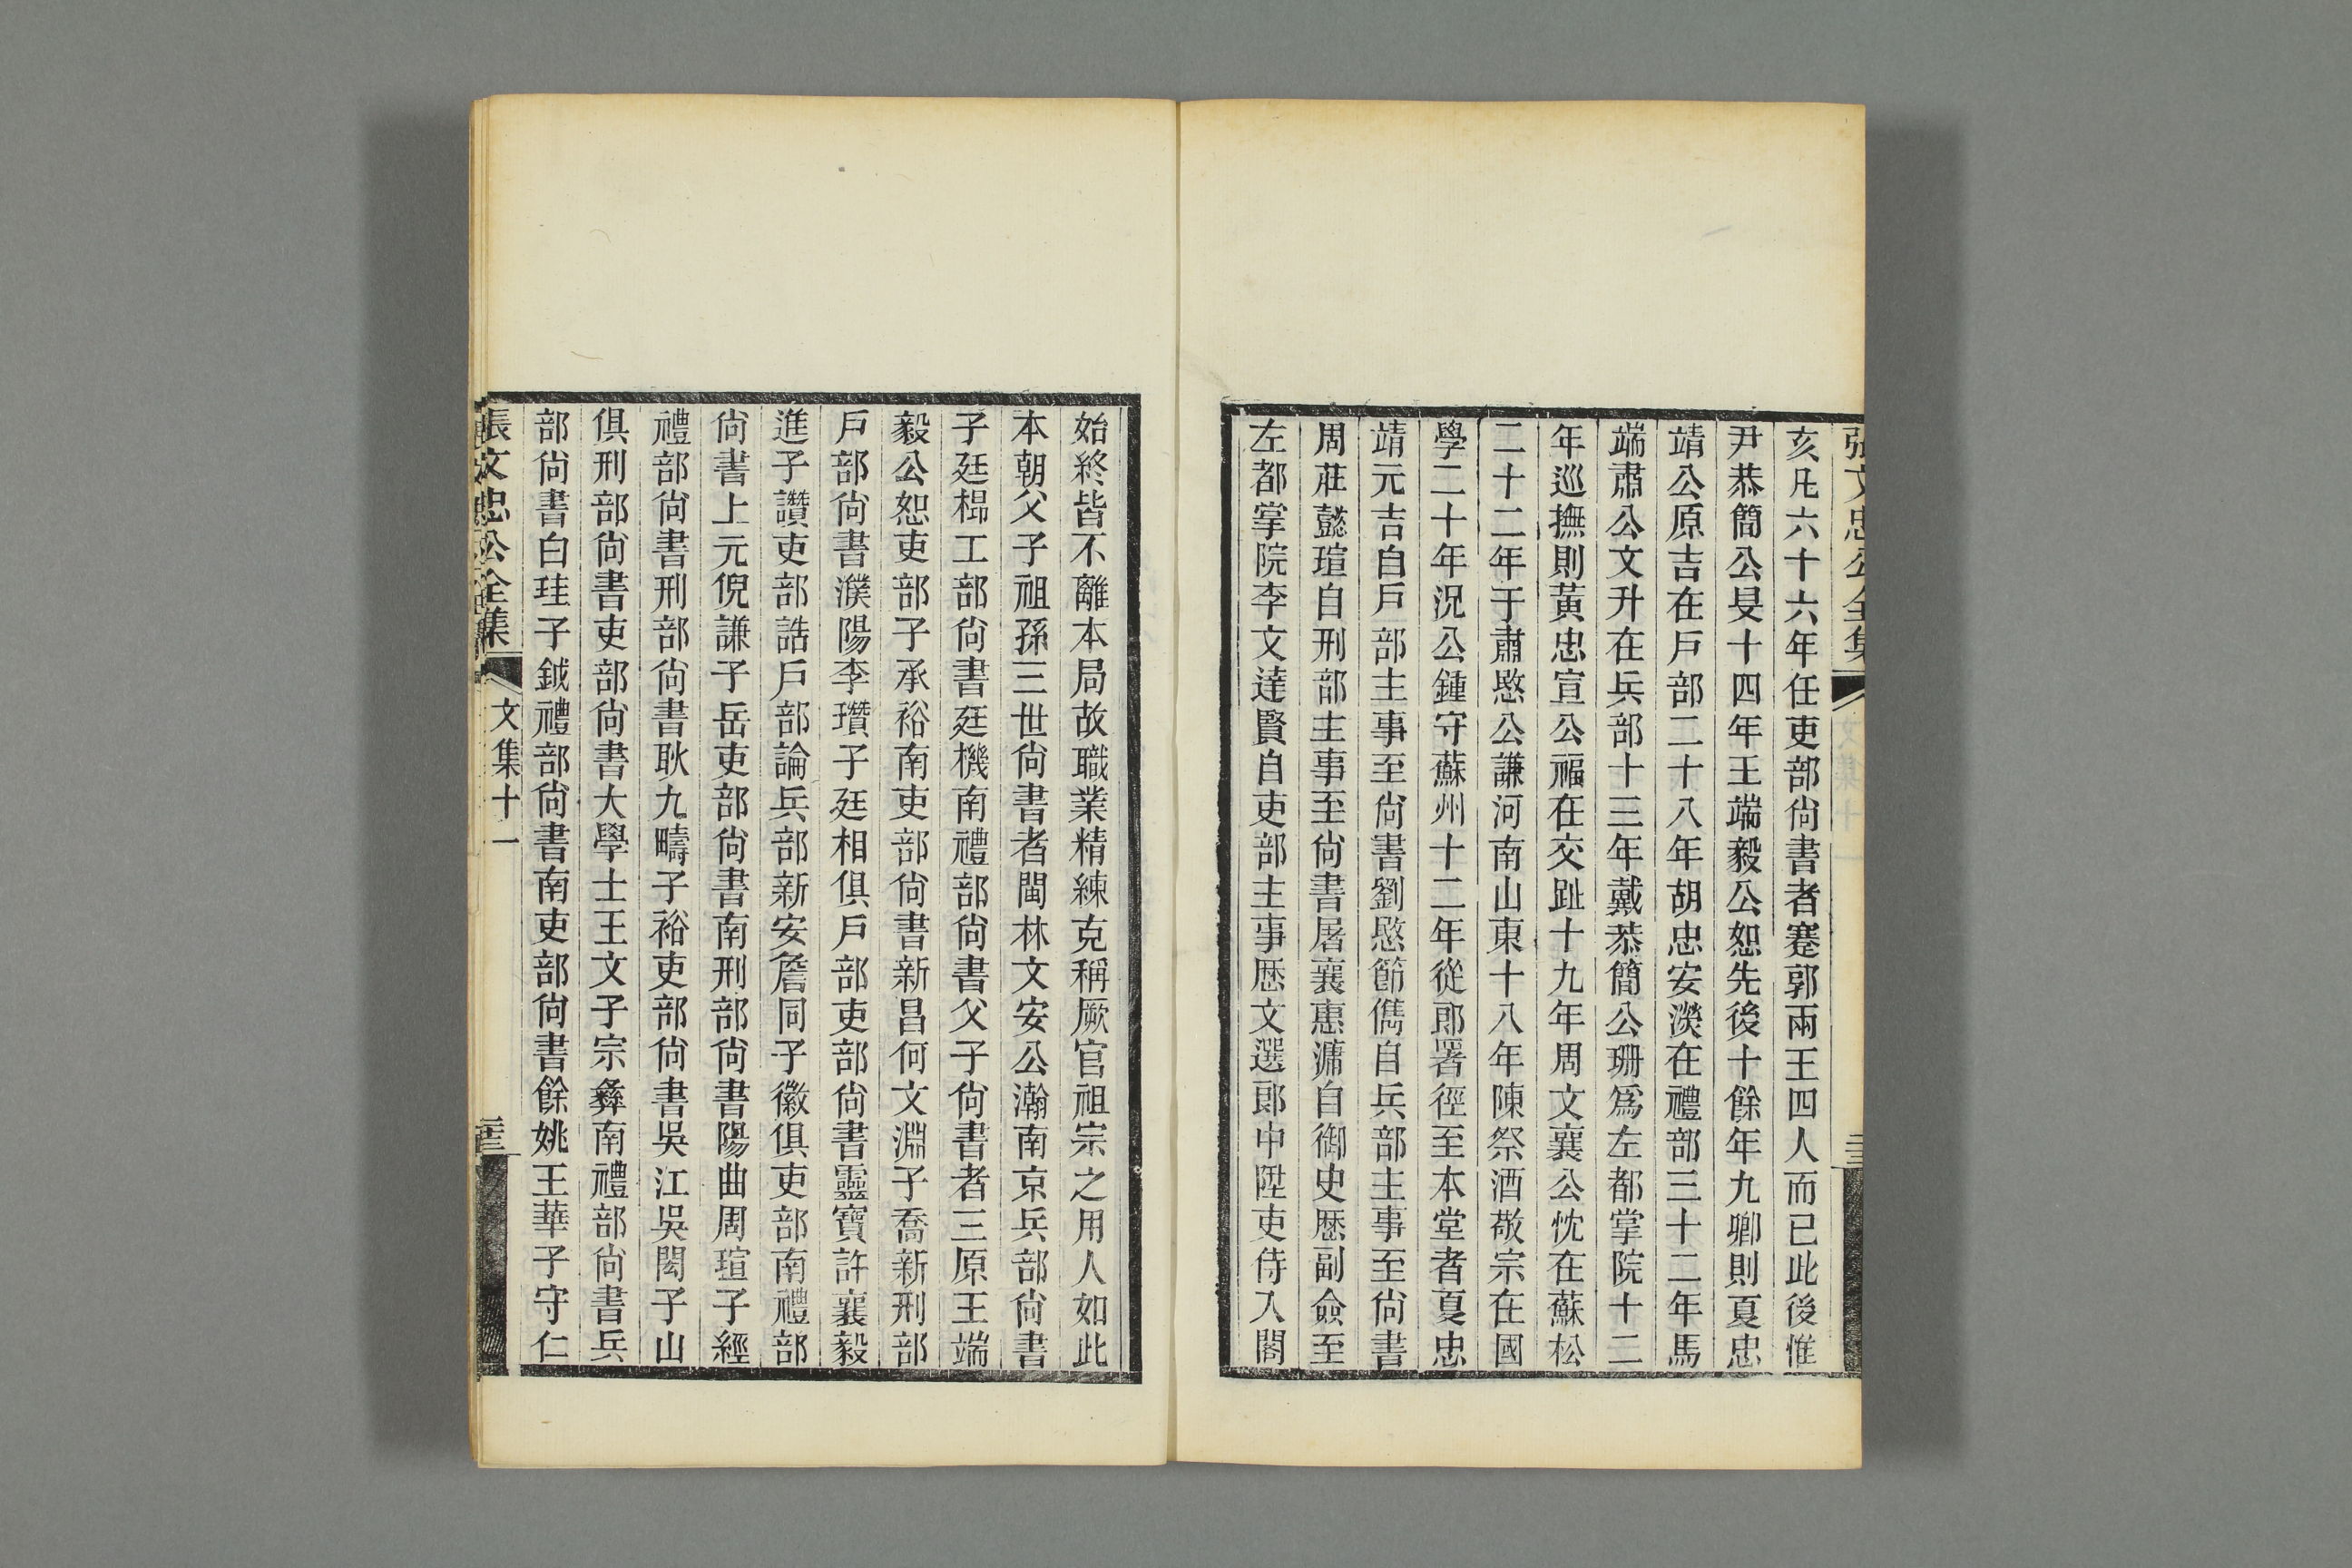 張文忠公全集
亥凡六十六年任吏部尙書者蹇郭兩王四人而已此後惟
尹恭簡公旻十四年王端毅公恕先後十餘年九卿則夏忠
靖公原吉在戶部二十八年胡忠安濙在禮部三十二年馬
端肅公文升在兵部十三年戴恭簡公珊爲左都掌院十二
年巡撫則黃忠宣公福在交趾十九年周文襄公忱在蘇松
二十二年于肅愍公謙河南山東十八年陳祭酒敬宗在國
學二十年況公鍾守蘇州十二年從郎署徑至本堂者夏忠
靖元吉自戶部主事至尙書劉愍節儁自兵部主事至尙書
周莊懿瑄自刑部主事至尙書屠襄惠滽自御史歷副僉至
左都掌院李文達賢自吏部主事歷文選郎中陞吏侍入閣
始終皆不離本局故職業精練克稱厥官祖宗之用人如此
本朝父子祖孫三世尙書者閩林文安公瀚南京兵部尙書
子廷㭿工部尙書廷機南禮部尙書父子尙書者三原王端
毅公恕吏部子承裕南吏部尙書新昌何文淵子喬新刑部
戶部尙書濮陽李瓚子廷相俱戶部吏部尙書靈寶許襄毅
進子讚吏部誥戶部論兵部新安詹同子徽俱吏部南禮部
尙書上元倪謙子岳吏部尙書南刑部尙書陽曲周瑄子經
禮部尙書刑部尙書耿九疇子裕吏部尙書吳江吳閎子山
俱刑部尙書吏部尙書大學士王文子宗彝南禮部尙書兵
部尙書白珪子鉞禮部尙書南吏部尙書餘姚王華子守仁
張文忠公全集
文集十一